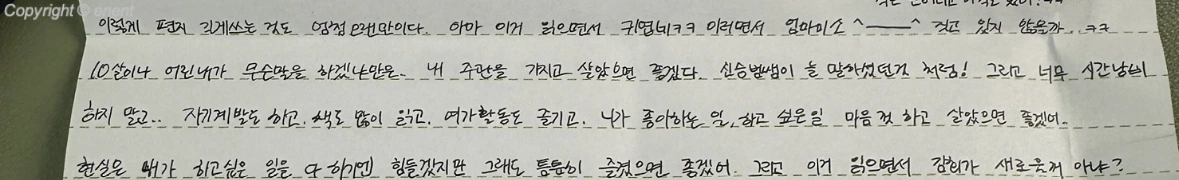 Copyright © enent
이렇게 편지 길게쓰는 것도 엄청 오랜만이다. 아마 이거 읽으면서 귀엽네ㅋㅋ 이러면서 엄마미소 ^──^ 짓고 있지 않을까..ㅋㅋ
10살이나 어린 내가 무슨말을 하겠냐만은.. 내 주관을 가지고 살았으면 좋겠다. 신승범쌤이 늘 말하셨던것 처럼! 그리고 너무 시간낭비
하지 말고.. 자기계발도 하고, 책도 많이 읽고, 여가활동도 즐기고, 니가 좋아하는 일, 하고 싶은일 마음껏 하고 살았으면 좋겠어.
현실은 내가 하고싶은 일을 다 하기엔 힘들겠지만 그래도 틈틈히 즐겼으면 좋겠어. 그리고 이거 읽으면서 감회가 새로운거 아냐?